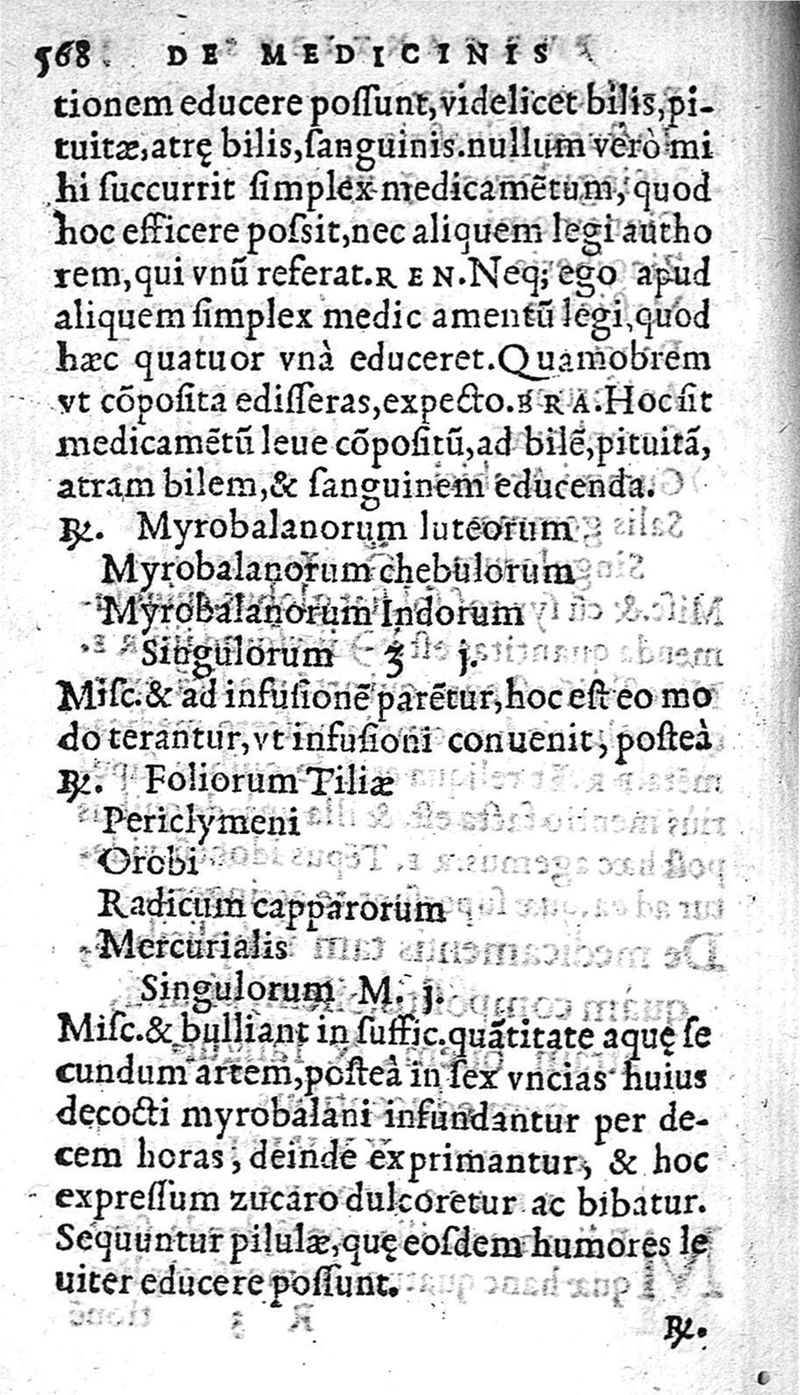 568 DE MEDICINIS
tionem educere poſſunt,videlicet bilis,pi-
tuitæ,atrę bilis,ſanguinis.nullum verò mi
hi ſuccurrit ſimplex medicamētum, quod
hoc efficere poſsit,nec aliquem legi autho
rem,qui vnū referat.REN.Neq; ego apud
aliquem ſimplex medic amentū legi,quod
hæc quatuor vnà educeret.Quamobrem
vt cōpoſita ediſſeras,expecto.BRA.Hoc ſit
medicamētū leue cōpoſitū,ad bilē,pituitā,
atram bilem,& ſanguinem educenda.
℞. Myrobalanorum luteorum
Myrobalanorum chebulorum
Myrobalanorum Indorum
Singulorum ʒ j.
Miſc.& ad infuſionē parētur,hoc eſt eo mo
do terantur,vt infuſioni conuenit, poſteà
℞. Foliorum Tiliæ
Periclymeni
Orobi
Radicum capparorum
Mercurialis
Singulorum M. j.
Miſc.& bulliant in ſuffic.quātitate aquę ſe
cundum artem,poſteà in ſex vncias huius
decocti myrobalani infundantur per de-
cem horas, deinde exprimantur, & hoc
expreſſum zucaro dulcoretur ac bibatur.
Sequuntur pilulæ,quę eoſdem humores le
uiter educere poſſunt.
℞.